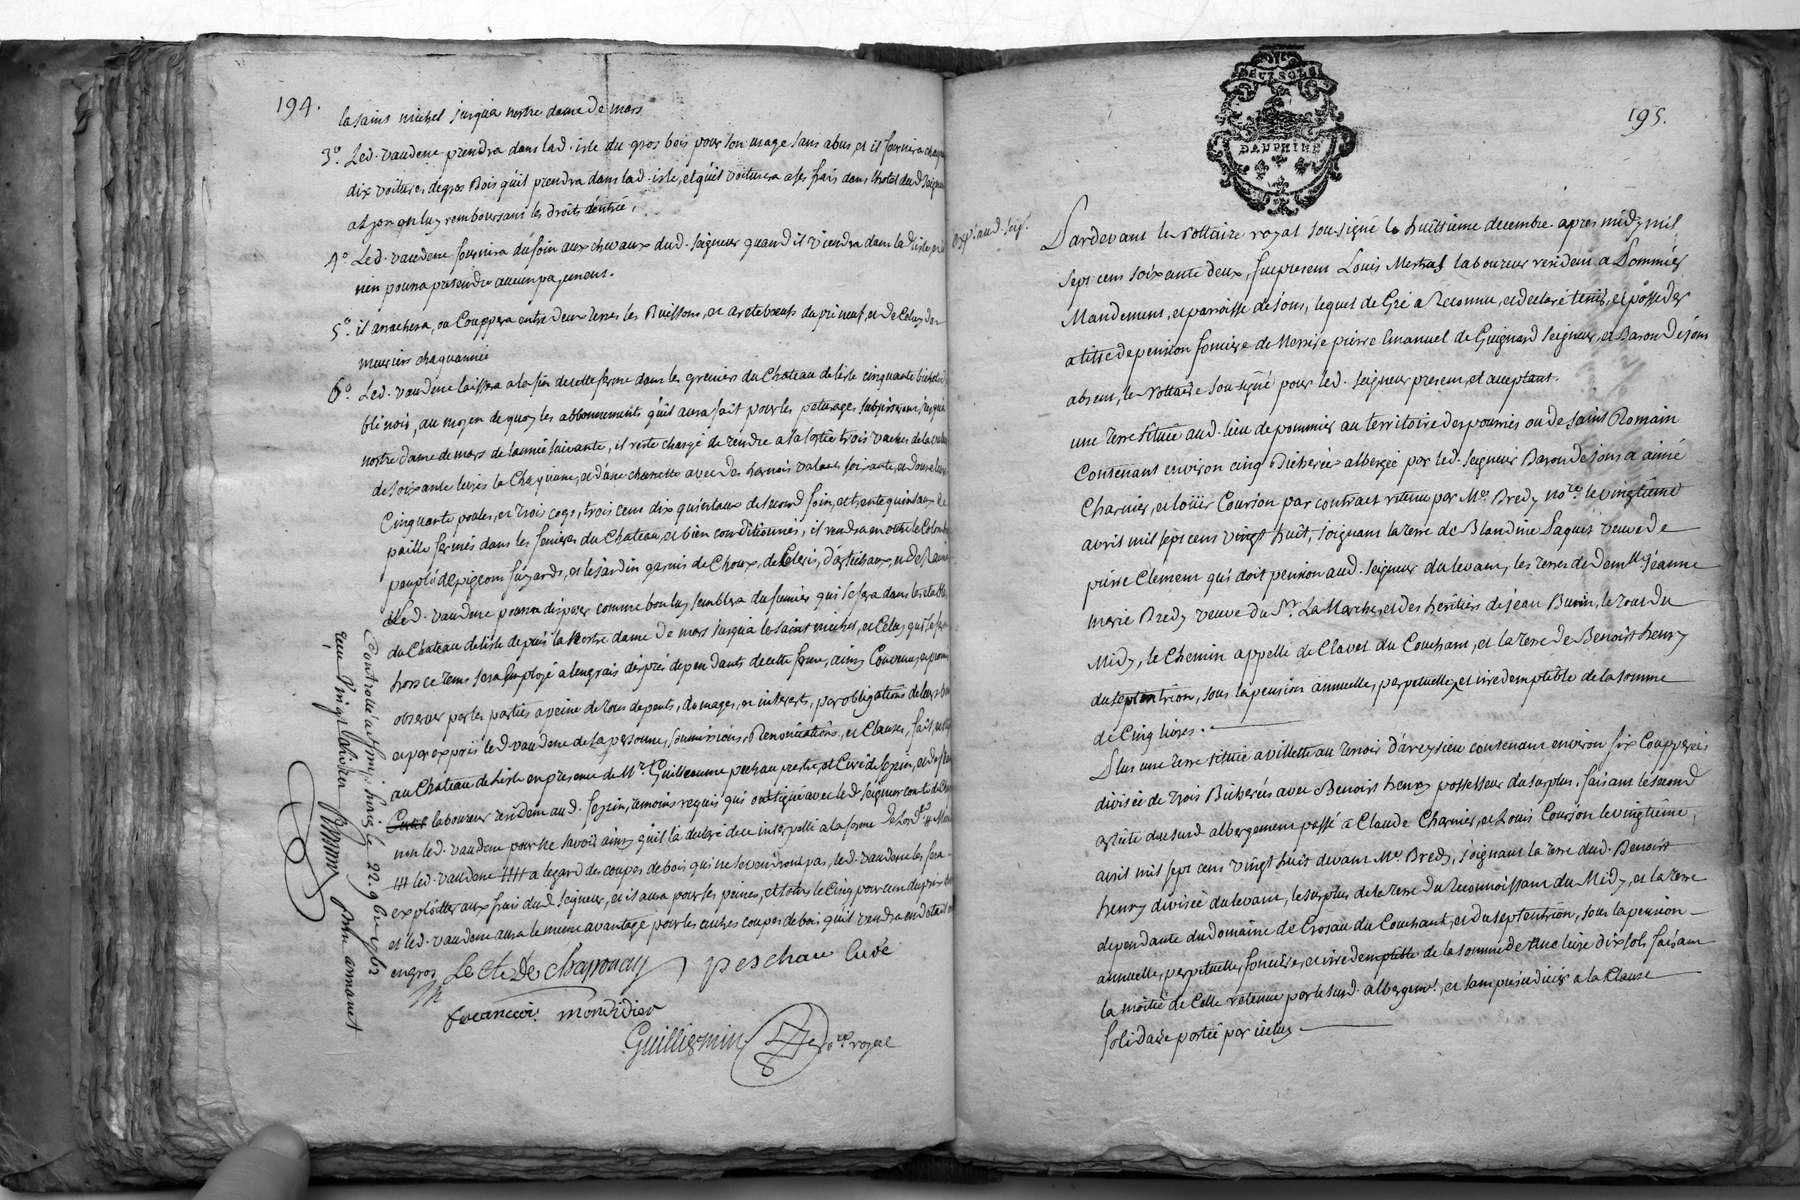 194.
la saint michel jusqu'a nostre dame de mars
3.° Led. vaudene prendra dans lad. isle du gros bois pour son usage sans abus, et il fournira
dix voitures de gros Bois qu'il prendra dans lad. isle, et qu'il voiturera a ses frais dans l'hotel dud. Seigneur
a Lyon en luy remboursant les droits d'entrée,
4.° Led. vaudene fournira du foin aux chevaux dud. seigneur quand il viendra dans lad. isle
rien pourra pretendre aucun payement.
5.° il arrachera, ou Couppera entre deux terres les Buissons, et
muriers chaque année
6.° Led. vaudene laissera a la fin de cette ferme dans les greniers du Chateau de lisle cinquante bichets
blé noir, au moyen de quoy les abbonnements qu'il aura fait pour les paturages subsisteront jusqu'a
nostre dame de mars de l'année suivante, il reste chargé de rendre a sa sortie trois vaches de la valeur
de soixante livres la Chaqu'une, et d'une charrette avec des harnois valant soixante, et douze livres
Cinquante poules, et trois coqs, trois cens dix quintaux de second foin, et trente quintaux de
paille fermés dans les fenieres du Chateau, et bien conditionnés, il rendra en outre le Colombier
peuplé de pigeons fuyards, et le jardin garnis de Choux, de Celeris, d'artichaux, et de Raves
Led. vaudene pourra disposer comme bon luy semblera du fumier qui se fera dans les etables
du Chateau de lisle depuis la Nostre dame de mars jusqu'a la saint michel, et Celuy qui se fera
hors ce tems sera employé a l'engrais des prés dependants de cette ferme, ainsy Convenu, et promis
observer par les parties a peine de tous depents, domages, et interets, par obligations de leurs biens
et par exprès led. vaudene de sa personne, soumissions, Renonciations, et Clauses, fait
au Chateau de lisle en presence de M.r Guilleaume peschau prestre, et Curé de Sezin, et de
laboureur resident aud. sezin, temoins requis qui ont signé avec led. seigneur comte de
non led. vaudene pour ne savoir ainsy qu'il l'a declaré de ce interpellé a la forme de l'ord.ce
led. vaudene a legard des coupes de bois qui ne se vendront pas, led. vaudene les fera
exploitter aux frais dud. seigneur, et il aura pour ses peines, et soins le Cinq pour cent du prix
et led. vaudene aura le meme avantage pour les autres coupes de bois qu'il vendra en detail
en gros Le Cte De Chaponay peschau Curé
francois mondidier
Guilliermin no.re royal
Controllé a
reçu vingt
exp.é aud. seig.r
DEUX SOLS
DAUPHINÉ
195.
Pardevant le Nottaire royal sousigné le huittieme decembre apres midy mil
sept cens soixante deux, fut present Louis Mestral laboureur resident a Pommier
Mandement, et parroisse de sons, lequel de Gré a Reconnu, et declaré tenir, et posseder
a titre de pension fonciere de Messire pierre Emanuel de Guignard seigneur, et Baron de sons
absent, le Nottaire sousigné pour led. seigneur present, et acceptant.
une Terre située aud. lieu de pommier au territoire des pourries ou de saint Romain
Contenant environ cinq Bicherées albergée par led. seigneur Baron de sons a aimé
Charvier, et louis Courson par contract retenu par M.e Bredy no.re le vingtieme
avril mil sept cens vingt huit, joignant la terre de Blandine Paquet veuve de
pierre Clement qui doit pension aud. seigneur du levant, les terres de dem.lle Jeanne
marie Bredy veuve du S.r La Marche, et des heritiers de jean Buvin, le tout du
Midy, le Chemin appellé de Clavet du Couchant, et la terre de Benoist henry
du septentrion, sous la pension annuelle, perpetuelle, et irredemptible de la somme
de Cinq livres.
Plus une terre située a villette au terroir d'aveysieu contenant environ six Coupperées
divisée de trois Bicherées avec Benoist henry possesseur du surplus, faisant le second
article dususd. albergement passé a Claude Charvier, et Louis Courson le vingtieme
avril mil sept cens vingt huit devant M.e Bredy, joignant la terre dud. Benoist
henry divisée du levant, le surplus de la terre du Reconnoissant du Midy, et la terre
dependante du domaine de Crosau du Couchant, et du septentrion, sous la pension
annuelle, perpetuelle, fonciere, et irredemptible de la somme de une livre dix sols faisant
la moitié de Celle retenue par le susd. albergem.t, et sans préjudicier a la Clause
solidaire portée par icelluy